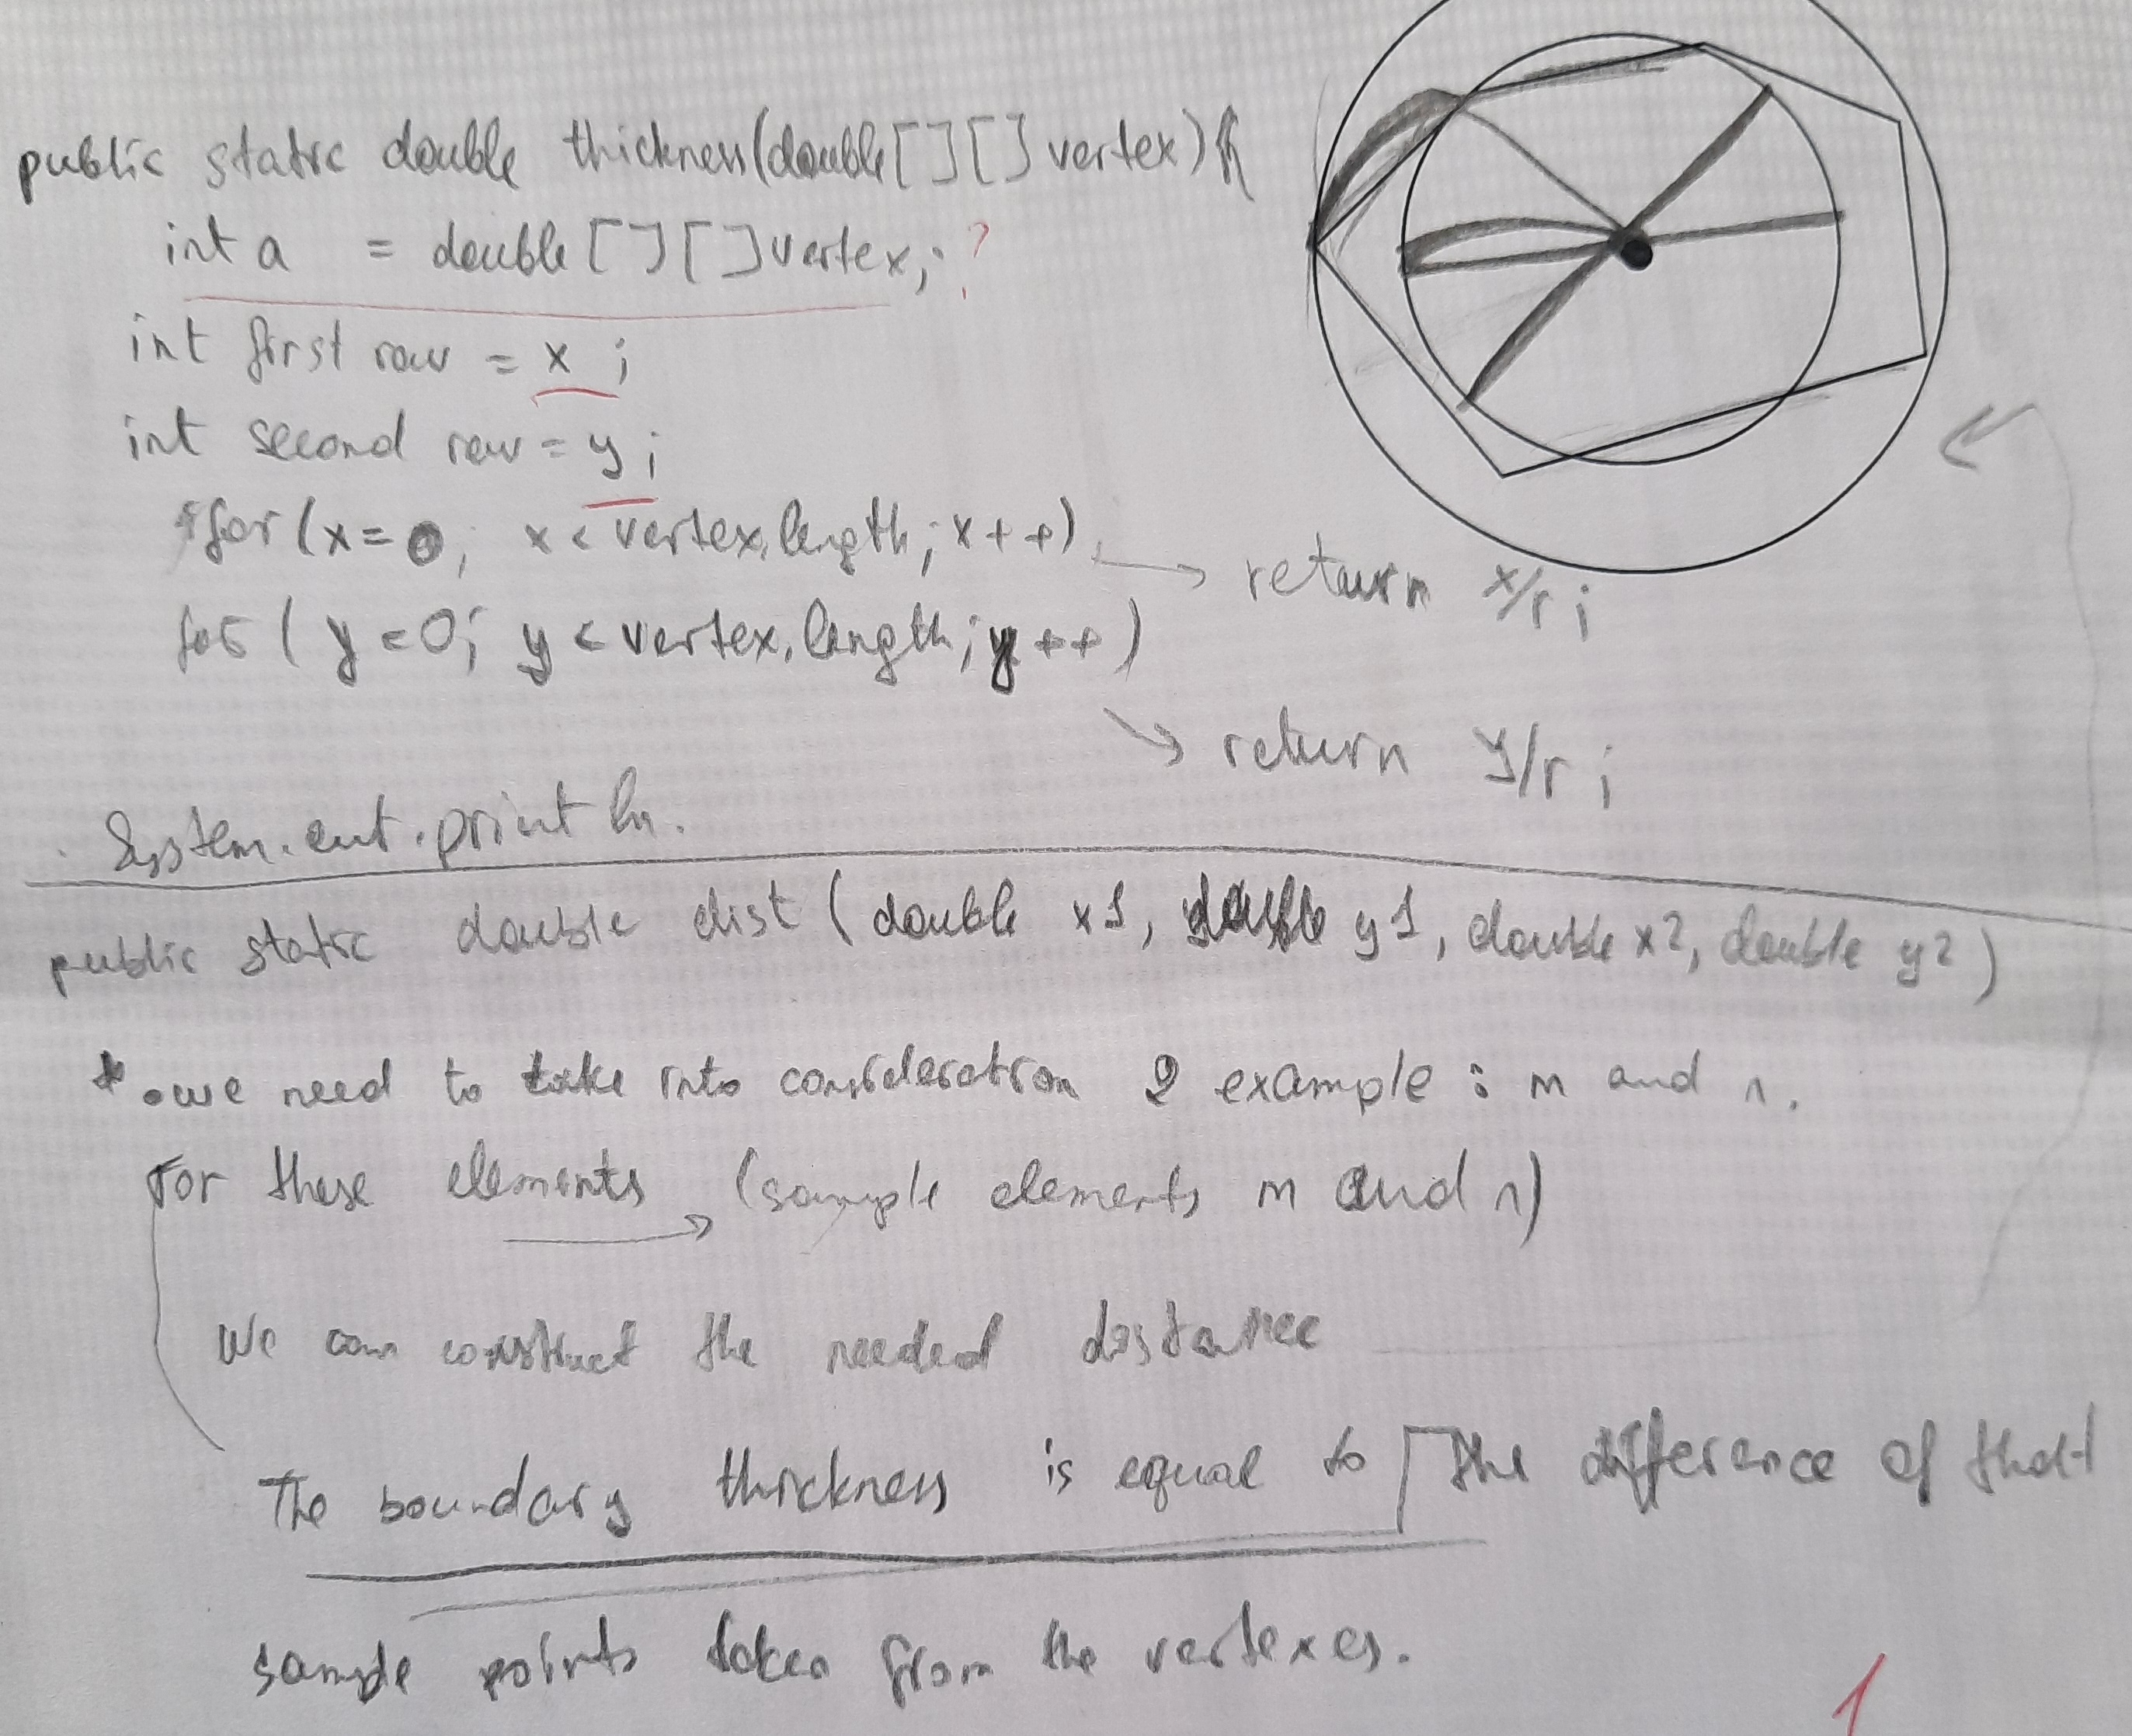 public static double thickness(double[][] vertex){
int a = double[][] vertex; ?
int first row = x ;
int second row = y ;
for (x = 0; x < vertex.length; x++) → return x/r ;
for ( y = 0; y < vertex.length; y++) → return y/r ;
System.out.println.
public static double dist ( double x1, double y1, double x2, double y2 )
* • we need to take into consideration 2 example : m and n.
For these elements → (sample elements m and n)
We can construct the needed distance
The boundary thickness is equal to The difference of that
sample points taken from the vertexes.
1